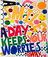 A DAY
KEEPS
WORRIES
AWAY